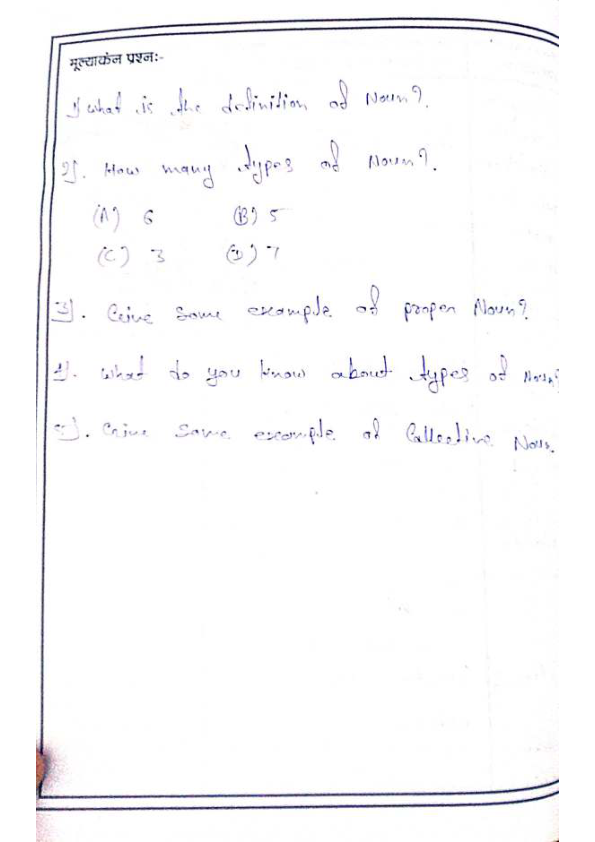 मूल्याकंन प्रश्न:-
1) What is the definition of Noun?.
2). How many types of Noun?.
(A) 6 (B) 5
(C) 3 (D) 7
3). Give some example of proper Noun?
4). What do you know about types of Noun?
5). Give some example of Collective Noun.